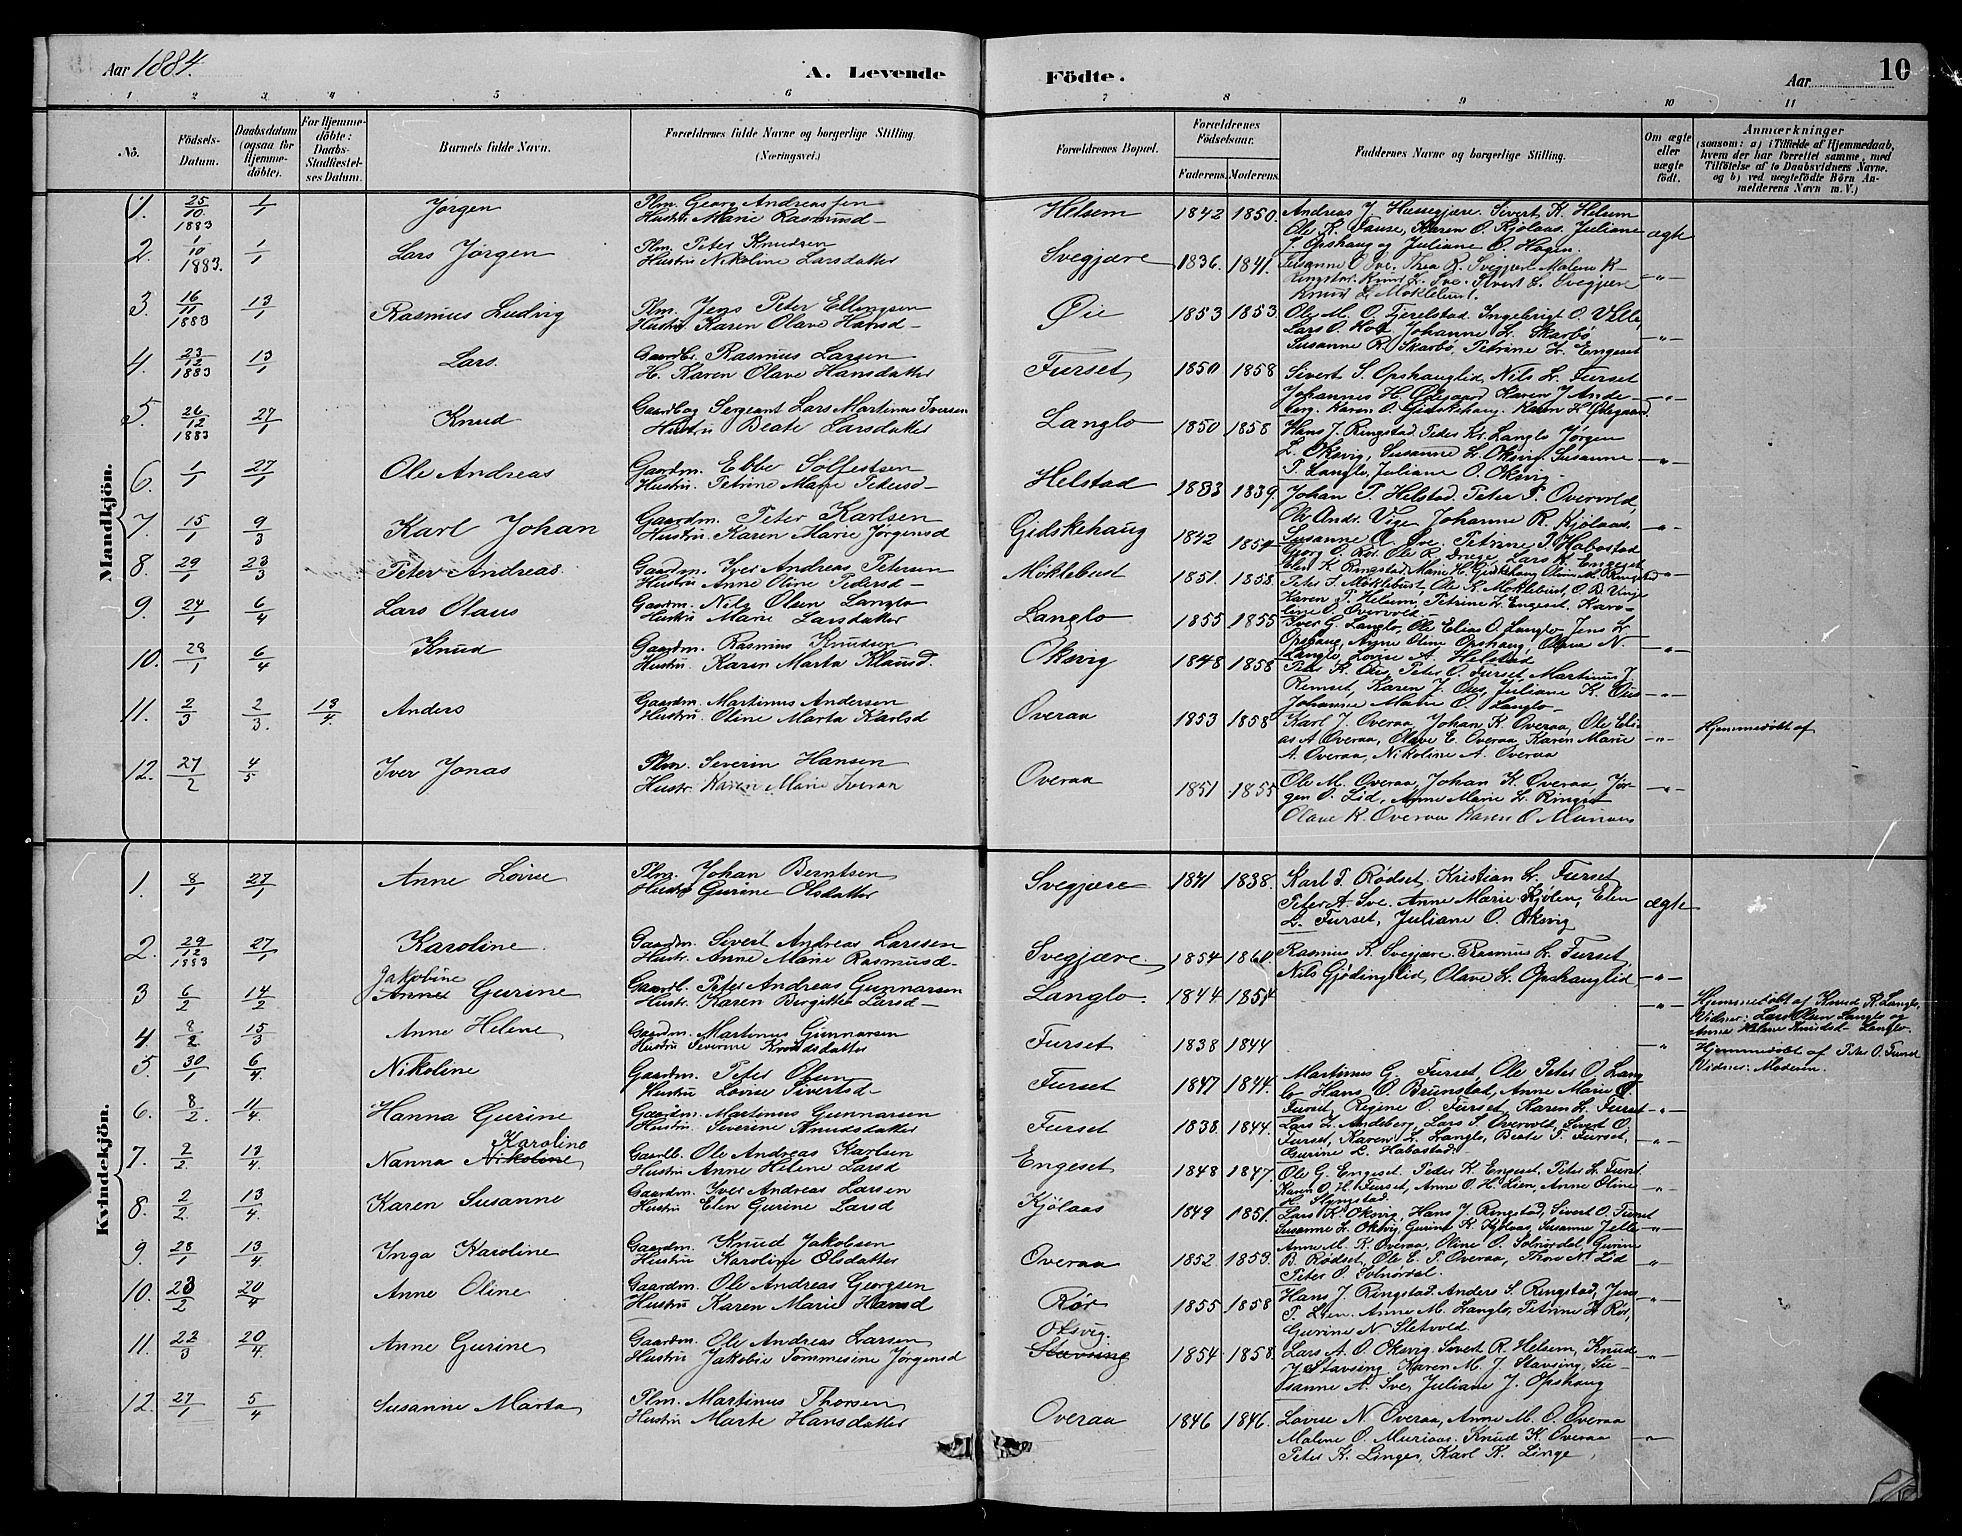 Aar 1884. A. Levende Födte. Aar 10
1 2 3 4 5 6 7 8 9 10 11
No. Födsels-Datum. Daabsdatum (ogsaa for Hjemmedöbte). For Hjemmedöbte: Daabs-Stadfæstelses Datum. Barnets fulde Navn. Forældrenes fulde Navne og borgerlige Stilling. (Næringsvei.) Forældrenes Bopæl. Forældrenes Födselsaar. Faderens. Moderens. Faddernes Navne og borgerlige Stilling. Om ægte eller uægte födt. Anmærkninger (saasom: a) i Tilfælde af Hjemmedaab, hvem der har forrettet samme, med Tilföielse af to Daabsvidners Navne. og b) ved uægtefödte Börn Anmelderens Navn m. V.)
Mandkjön.
1. 25/10 1883 1/1 Jørgen Plm. Georg Andreassen Helsem 1842 1850. Andreas J. Hussegjære. Sivert K. Helsem
Hustru Marie Rasmusd- Ole K. Fause, Karen O. Kjølaas, Juliane ægte
J. Opshaug og Juliane O. Hagen.
2. 1/10 1883. 1/1 Lars Jørgen Plm. Peter Knudsen Svegjære 1836. 1841. Susanne O. Sve. Thea R. Svegjære Malene K-
Hustru Nikoline Larsdatter Ringstad. Knud L. Sve. Sivert E. Svegjære -"-
Knud L. Møklebust.
3. 16/11 1883 13/1 Rasmus Ludvig Plm. Jens Peter Ellingsen Øie 1853 1853 Ole M. O. Fjerelstad Ingebrigt O. Velle,
Hustru Karen Olave Hansd- Lars O. Hof Johanne L. Skarbø
Susanne R. Skarbø, Petrine L. Engeset -"-
4. 23/12 1883 13/1 Lars. Gaardbr. Rasmus Larsen Furset 1850 1858 Sivert S. Opshauglid, Nils L. Furset
H. Karen Olave Hansdatter Johannes H. Ødegaard Karen J. Ande
berg. Karen O. Gidskehaug. Karen H. Ødegaard -"-
5. 26/12 1883 27/1 Knud Gaardb og Sergeant Lars Martinus Iversen Langlo 1850 1858 Hans J. Ringstad. Peder Kr. Langlo Jørgen
Hustru Beate Larsdatter L. Oksvig, Susanne L. Oksvig. Susanne
P. Langlo, Juliane O. Oksvig. -"-
6. 1/1 27/1 Ole Andreas Gaardm. Ebbe Solfestsen Helstad 1833 1839 Johan P. Helstad. Peter P. Overvold,
Hustru. Petrine Marie Pedersd- Ole Andr. Vige Johanne R. Kjølaas.
7. 15/1 9/3 Karl Johan Gaardm. Peter Karlsen Gidskehaug 1842 1854 Susanne O. Sve. Petrine P. Habostad -"-
Hustru. Karen Marie Jørgensd Georg O. Rør. Ole R. Drege. Lars K. Engeset
Elen K. Ringstad Marie H. Gidskehaug Oline M. Ringstad -"-
8. 29/1 23/3 Peter Andreas. Gaardm. Iver Andreas Petersen Møklebust 1851. 1858 Peter J. Møklebust, Ole K. Møklebust, O. B. Vinje
Hustru Anne Oline Pedersd- Karen P. Helsem, Petrine L. Engeset. Karo-
line O. Overvold.
9. 24/1 6/4 Lars Olaus Gaardm. Nils Olsen Langlo Langlo 1855 1855 Iver G. Langlo, Ole Elias O. Langlo Jens L.
Hustru Marie Larsdatter Opshaug, Anne Oline Opshaug, Olave N.
Langlo, Lovise A. Helstad -"-
10. 28/1 6/4 Knud Gaardm. Rasmus Knudsen Oksvig 1848 1858 Peter K. Øies Peter O. Furset, Martinus J.
Hustru. Karen Marta Klausd. Remset, Karen J. Øies, Juliane K. Øies -"-
Johanne Malene O. Langlo
11. 2/3 2/3. 13/4. Anders Gaardm. Martinus Andersen Overaa 1853 1858 Karl J. Overaa, Johan K. Overaa, Ole Eli- Hjemmedøbt af
Hustru. Oline Marta Karlsd as A. Overaa, Olave E. Overaa Karen Marie -"-
A. Overaa, Nikoline A. Overaa
12. 27/2 4/5 Iver Jonas Plm. Severin Hansen Overaa 1851 1855 Ole M. Overaa, Johan K. Overaa, Jør-
Hustr. Karen Marie Iversd gen O. Lid, Anne Marie L. Ringset -"-
Olave K. Overaa Karen O. Muriaas
Kvindekjön.
1. 8/1 27/1 Anne Lovise Plm. Johan Berntsen Svegjære 1841 1838. Karl P. Rødset, Kristian L. Furset
Hustru Gurine Olsdatter Peter A. Sve. Anne Marie Kjølen, Elen ægte
L. Furset, Juliane O. Oksvig
2. 29/12 1883 27/1 Karoline Gaardm. Sivert Andreas Larssen Svegjære 1854 1860. Rasmus K. Svegjære. Rasmus L. Furset,
Hustr. Anne Marie Rasmusd- Nils Gjødingslid, Olave L. Opshauglid -"-
Jakobine
3 6/2 14/2 Anne Gurine Gaardb. Peter Andreas Gunnarsen Langlo 1844 1854 -"- Hjemmedøbt af Knud R. Langlo,
Hustr. Karen Birgitte Larsd- Vidner: Lars Olsen Langlo og
4. 8/2 15/3 Anne Helene Gaardm. Martinus Gunnarsen Furset 1838 1844 -"- Anne Helene Knudsd- Langlo.
Hustru Severine Knudsdatter Hjemmedøbt af Peter O. Furset
5. 30/1 6/4. Nikoline Gaardm. Peter Olsen Furset 1847 1844. Martinus G. Furset Ole Peter O. Lang Vidner: Moderen.
Hustru Lovise Sivertsd- lo Hans O. Brunstad, Anne Marie O.
Furset, Regine O. Furset, Karen L. Furset -"-
6. 8/2. 11/4. Hanna Gurine Gaardm. Martinus Gunnarsen Furset 1838 1844. Lars L. Andeberg. Lars S. Overvold, Sivert O.
Hustru. Severine Knudsdatter Furset, Karen L. Langlo, Beate T. Furset. -"-
Karoline Gurine L. Habostad.
7. 2/2 13/4. Nanna Nikoline Gaardb. Ole Andreas Karlsen Engeset 1848 1847. Ole G. Engeset. Peder K. Engeset, Peter L. Furset
Hustru Anne Helene Larsd Karen O. H. Furset, Anne O. H. Lien, Anne Oline -"-
H. Slyngstad.
8. 2/2 13/4. Karen Susanne Gaardm. Iver Andreas Larsen Kjølaas 1849 1851. Lars K. Oksvig, Hans J. Ringstad, Sivert O. Furset
Hustru Elen Gurine Larsd Susanne L. Oksvig, Gurine K. Kjølaas, Susanne Jelle -"-
9. 28/1 13/4 Inga Karoline Gaardm. Knud Jakobsen Overaa 1852 1853. Anne M. K. Overaa, Oline O. Solnørdal Gurine
Hustru Karoline Olsdatter B. Rødset, Ole E. P. Overaa, Thore N. Lid -"-
Peter O. Solnørdal.
10. 23/2 20/4 Anne Oline Gaardm. Ole Andreas Georgsen Rør 1855 1858 Hans J. Ringstad. Anders S. Ringstad, Jens -"-
Hustru Karen Marie Hansd P. Lien. Anne M. Langlo, Petrine K. Rør,
Gurine N. Sletvold.
11. 22/3 20/4. Anne Gurine Gaardm. Ole Andreas Larsen Oksvig. Stavseng 1854. 1858. Lars A. O. Oksvig. Sivert R. Helsem, Knud -"-
Hustru Jakobie Tommesine Jørgensd J. Stavseng, Karen M. J. Stavseng, Su-
sanne A. Sve, Juliane J. Opshaug
12. 27/1 5/4 Susanne Marta Plm. Martinus Thorsen Overaa 1846 1846. Lovise N. Overaa, Anne M. O. Overaa
Hustru Marte Hansdatter Malene O. Muriaas. Knud K. Overaa -"-
Peter K. Linge, Karl K. Linge